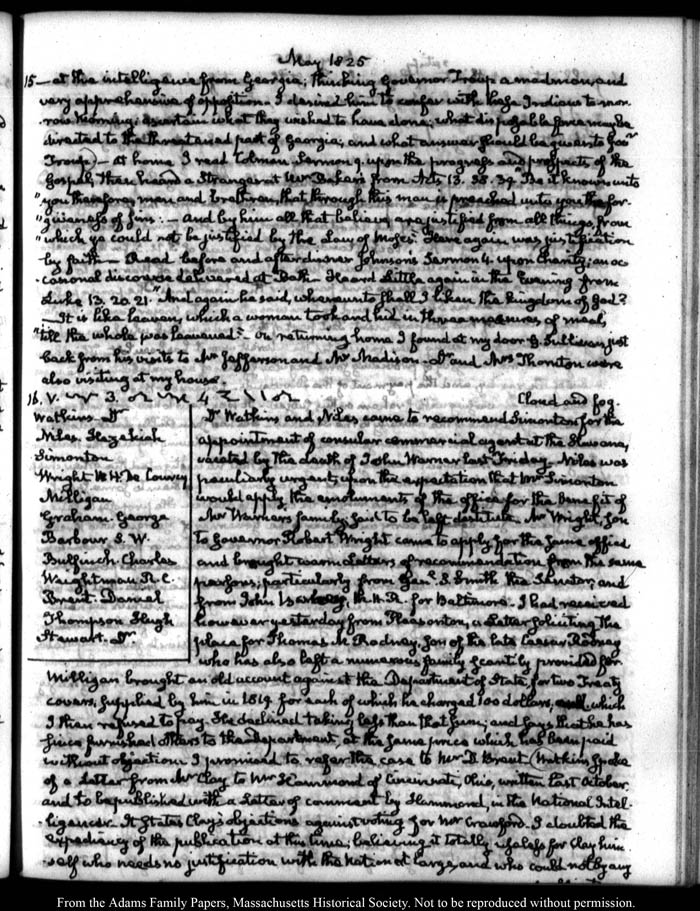 May 1825
15 — at this intelligence from Georgia; thinking Governor Troup a madman, and
very apprehensive of opposition. I desired him to confer with these Indians to mor-
row morning; ascertain what they wished to have done; what disposable force may be
directed to the threatened part of Georgia; and what answer should be given to Govr
Troup) — at home I read Colman Sermon 9. upon the progress and prospects of the
Gospel, then heard a Stranger at Mr Baker's from Acts 13. 38. 39. Be it known unto
"you therefore, men and brethren, that through this man is preached unto you the for-
"giveness of sins: — And by him all that believe, are justified from all things, from
"which ye could not be justified by the Law of Moses." Here again was justification
by faith — Read before and after dinner Johnson's Sermon 4. upon Charity; an oc-
casional discourse delivered at Bath. Heard Little again in the Evening from
Luke 13. 20. 21. "And again he said, whereunto shall I liken the kingdom of God?
— It is like leaven, which a woman took and hid in three measures of meal,
"till the whole was leavened" — On returning home I found at my door G. Sullivan just
back from his visits to Mr Jefferson and Mr Madison — Dr and Mrs Thornton were
also visiting at my house.
16. V. 3. 4 Cloud and fog.
Watkins Dr
Niles. Hezekiah
Simonton
Wright W. H. De Courcy
Milligan
Graham. George
Barbour S. W.
Bulfinch Charles
Weightman R. C.
Brent. Daniel
Thompson Hugh
Stewart. Dr
Dr Watkins and Niles came to recommend Simonton for the
appointment of consular commercial agent at the Havana,
vacated by the death of John Warner last Friday. Niles was
peculiarly urgent, upon the expectation that Mr Simonton
would apply the emoluments of the office for the benefit of
Mr Warner's family, said to be left destitute. Mr Wright, son
to Governor Robert Wright came to apply for the same office
and brought warm Letters of recommendation from the same
persons; particularly from Genl S. Smith the Senator, and
from John Barney, M. H. R. for Baltimore. I had received
however yesterday from Pleasonton, a Letter soliciting the
place for Thomas M. Rodney, Son of the late Caesar Rodney
who has also left a numerous family scantily provided for.
Milligan brought an old account against the Department of State, for two Treaty
covers, supplied by him in 1819. for each of which he charged 100 dollars, and which
I then refused to pay. He declined taking less than that sum; and says that he has
since furnished others to the Department, at the same price which has been paid
without objection. I promised to refer the case to Mr D. Brent. (Watkins spoke
of a Letter from Mr Clay to Mr Hammond of Cincinnati, Ohio, written last October,
and to be published with a Letter of comment by Hammond, in the National Intel-
ligencer. It states Clay's objections against voting for Mr Crawford. I doubted the
expediency of the publication at this time; believing it totally useless for Clay him-
self who needs no justification with the Nation at large, and who could not by any
From the Adams Family Papers, Massachusetts Historical Society. Not to be reproduced without permission.